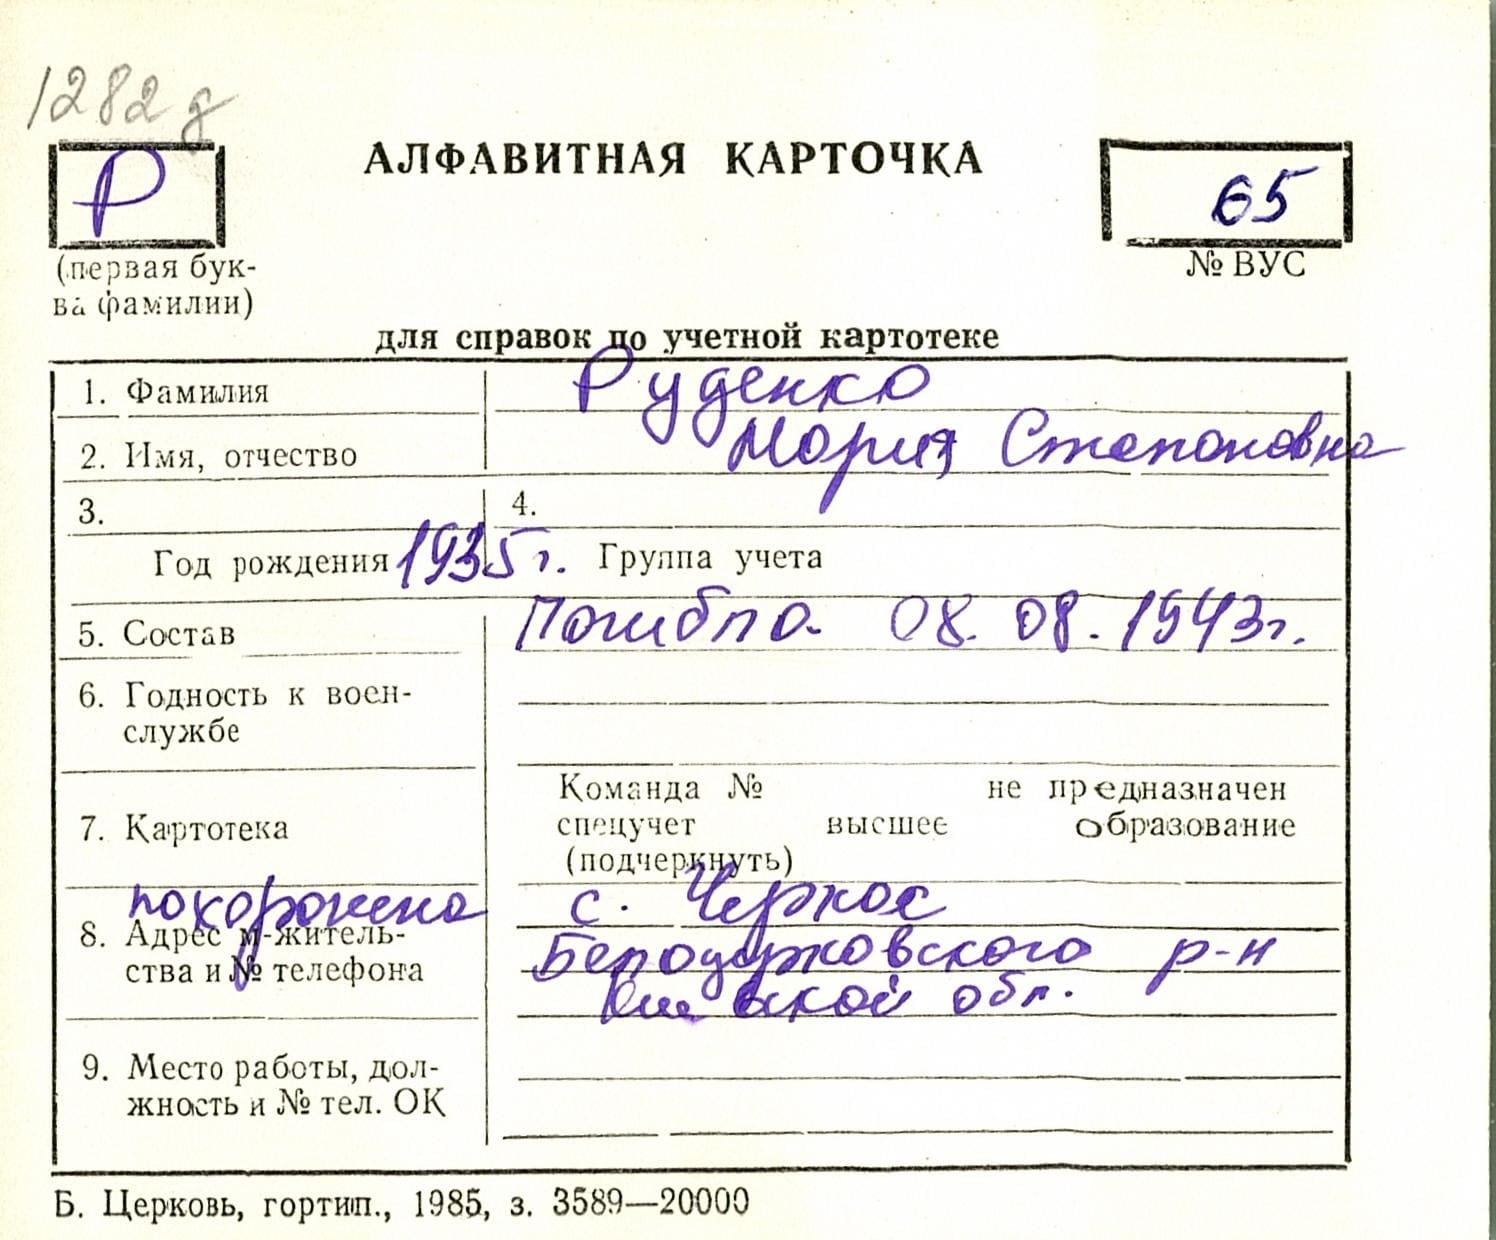 1282 д
Р
АЛФАВИТНАЯ КАРТОЧКА
65
(первая бук-
ва фамилии)
№ ВУС
для справок по учетной картотеке
1. Фамилия Руденко
2. Имя, отчество Мария Степановна
3. 4.
Год рождения 1935 г. Группа учета
5. Состав Погибла 08.08.1943г.
6. Годность к воен-
службе
Команда № не предназначен
7. Картотека спецучет высшее образование
(подчеркнуть)
похоронена с. Черкас
8. Адрес м-житель- Белоцерковского р-н
ства и № телефона Киевской обл.
9. Место работы, дол-
жность и № тел. ОК
Б. Церковь, гортип., 1985, з. 3589—20000